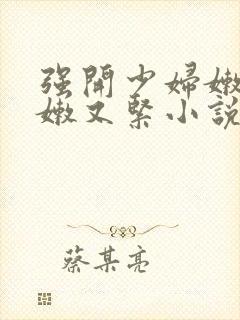 强開少婦嫩
嫩又緊小說
蔡某亮